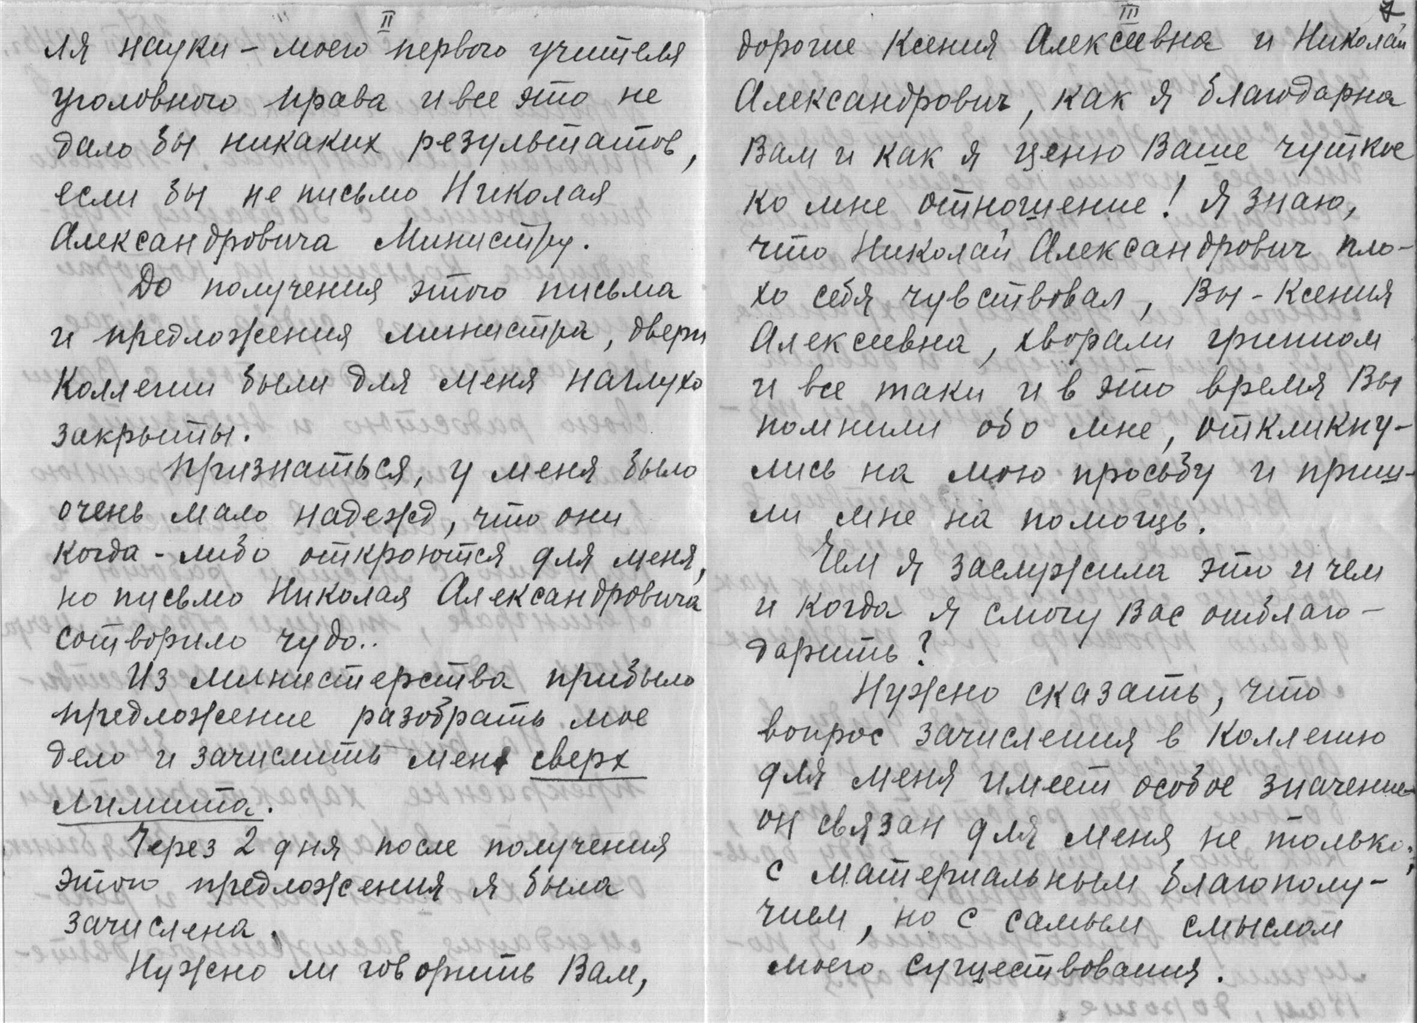 II
ля науки - моего первого учителя
уголовного права и все это не
дало бы никаких результатов,
если бы не письмо Николая
Александровича Министру.
До получения этого письма
и предложения министра, двери
Коллегии были для меня наглухо
закрыты.
Признаться, у меня было
очень мало надежд, что они
когда-либо откроются для меня,
но письмо Николая Александровича
сотворило чудо..
Из министерства прибыло
предложение разобрать мое
дело и зачислить меня сверх
лимита.
Через 2 дня после получения
этого предложения я была
зачислена.
Нужно ли говорить Вам,
III
7
дорогие Ксения Алексеевна и Николай
Александрович, как я благодарна
Вам и как я ценю Ваше чуткое
ко мне отношение! Я знаю,
что Николай Александрович пло-
хо себя чувствовал, Вы - Ксения
Алексеевна, хворали гриппом
и все таки и в это время Вы
помнили обо мне, откликну-
лись на мою просьбу и приш-
ли мне на помощь.
Чем я заслужила это и чем
и когда я смогу Вас отблаго-
дарить?
Нужно сказать, что
вопрос зачисления в Коллегию
для меня имеет особое значение
он связан для меня не только
с материальным благополу-
чием, но с самым смыслом
моего существования.